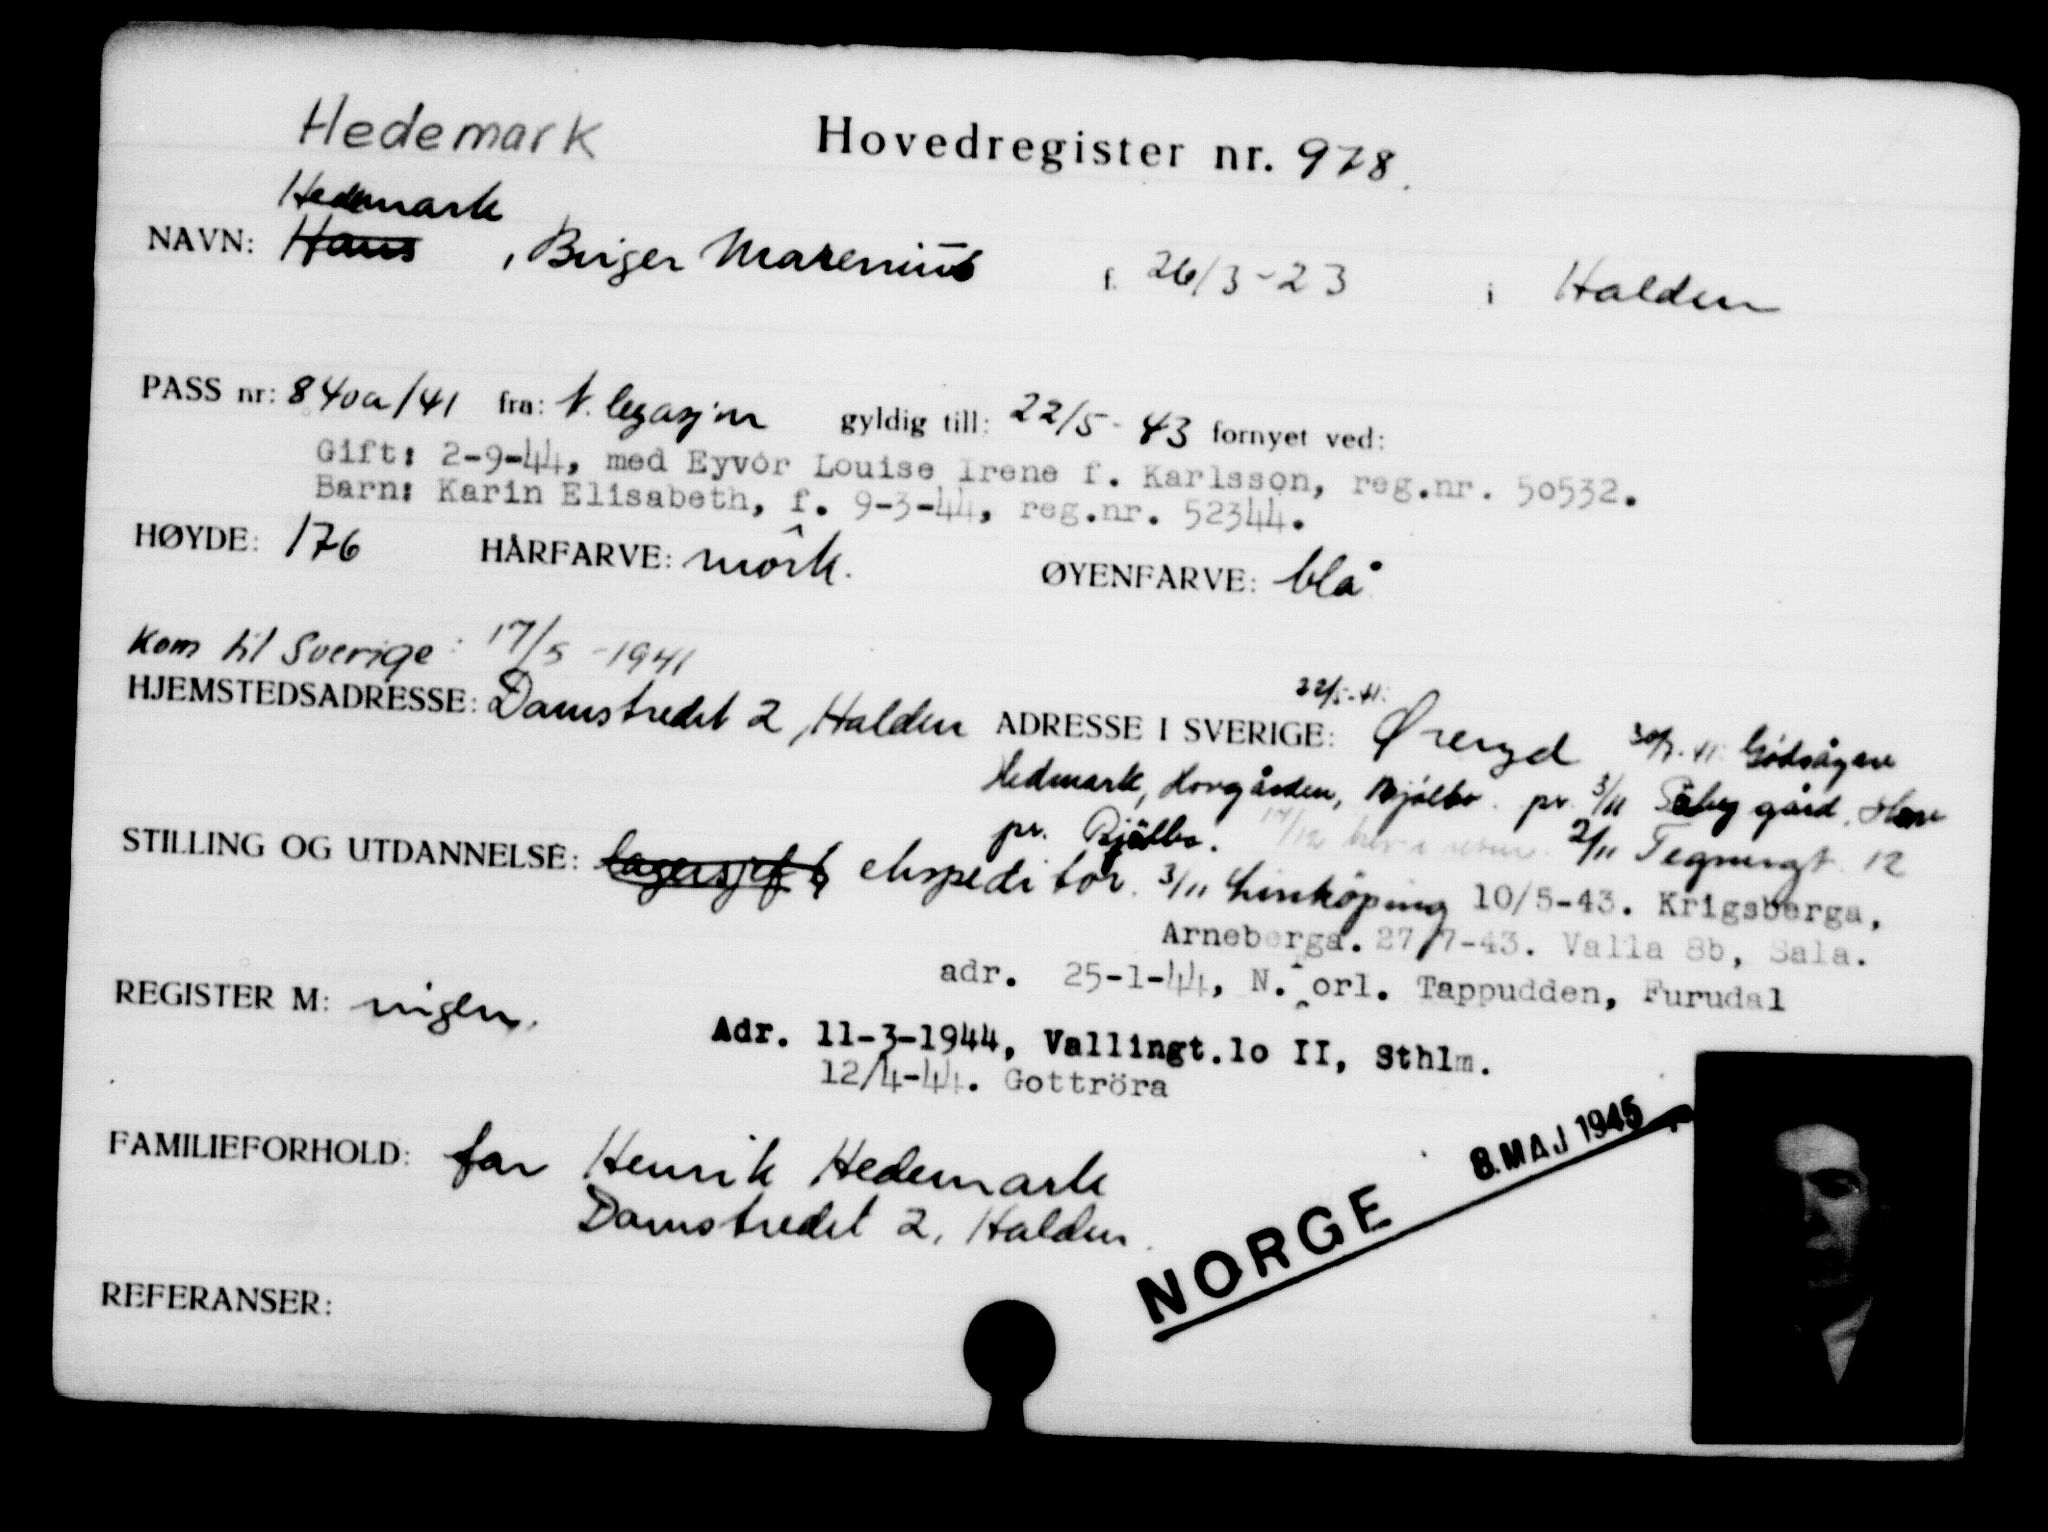 Hedemark
Hovedregister nr. 978.
Hedemark
NAVN: Hans , Birger Marenius f. 26/3-23 i Halden
PASS nr: 840a/41 fra: N. legasjon gyldig till: 22/5-43 fornyet ved:
Gift: 2-9-44, med Eyvor Louise Irene f. Karlsson, reg.nr. 50532.
Barn: Karin Elisabeth, f. 9-3-44, reg.nr. 52344.
HØYDE: 176 HÅRFARVE: mörk. ØYENFARVE: blå
Kom til Sverige: 17/5-1941
HJEMSTEDSADRESSE: Damstredet 2, Halden ADRESSE I SVERIGE: 22/5-41: Øreryd 30/7-41: Godsägare
Hedmark, Horgården, Mjölby. pr. 3/11 Säby gård,
pr. 17/12 2/11 Tegnergt. 12
STILLING OG UTDANNELSE: lagersjef ekspeditör. 3/11 Linköping 10/5-43. Krigsberga,
Arneberga. 27/7-43. Valla 8b, Sala.
adr. 25-1-44, N. orl. Tappudden, Furudal
REGISTER M: ingen.
Adr. 11-3-1944, Vallingt.10 II, Sthlm.
12/4-44. Gottröra
FAMILIEFORHOLD: far Henrik Hedemark
Damstredet 2, Halden.
NORGE 8. MAJ 1945
REFERANSER: